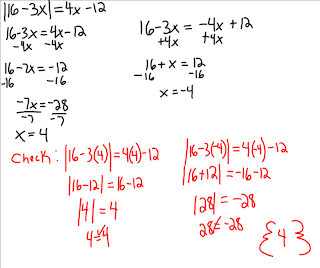 |16-3x|=4x-12
16-3x=4x-12
-4x -4x
16-7x=-12
-16 -16
-7x=-28
-7 -7
x=4
16-3x=-4x+12
+4x +4x
16+x=12
-16 -16
x=-4
Check: |16-3(4)|=4(4)-12
|16-12|=16-12
|4|=4
4=4
|16-3(-4)|=4(-4)-12
|16+12|=-16-12
|28|=-28
28≠-28
{4}